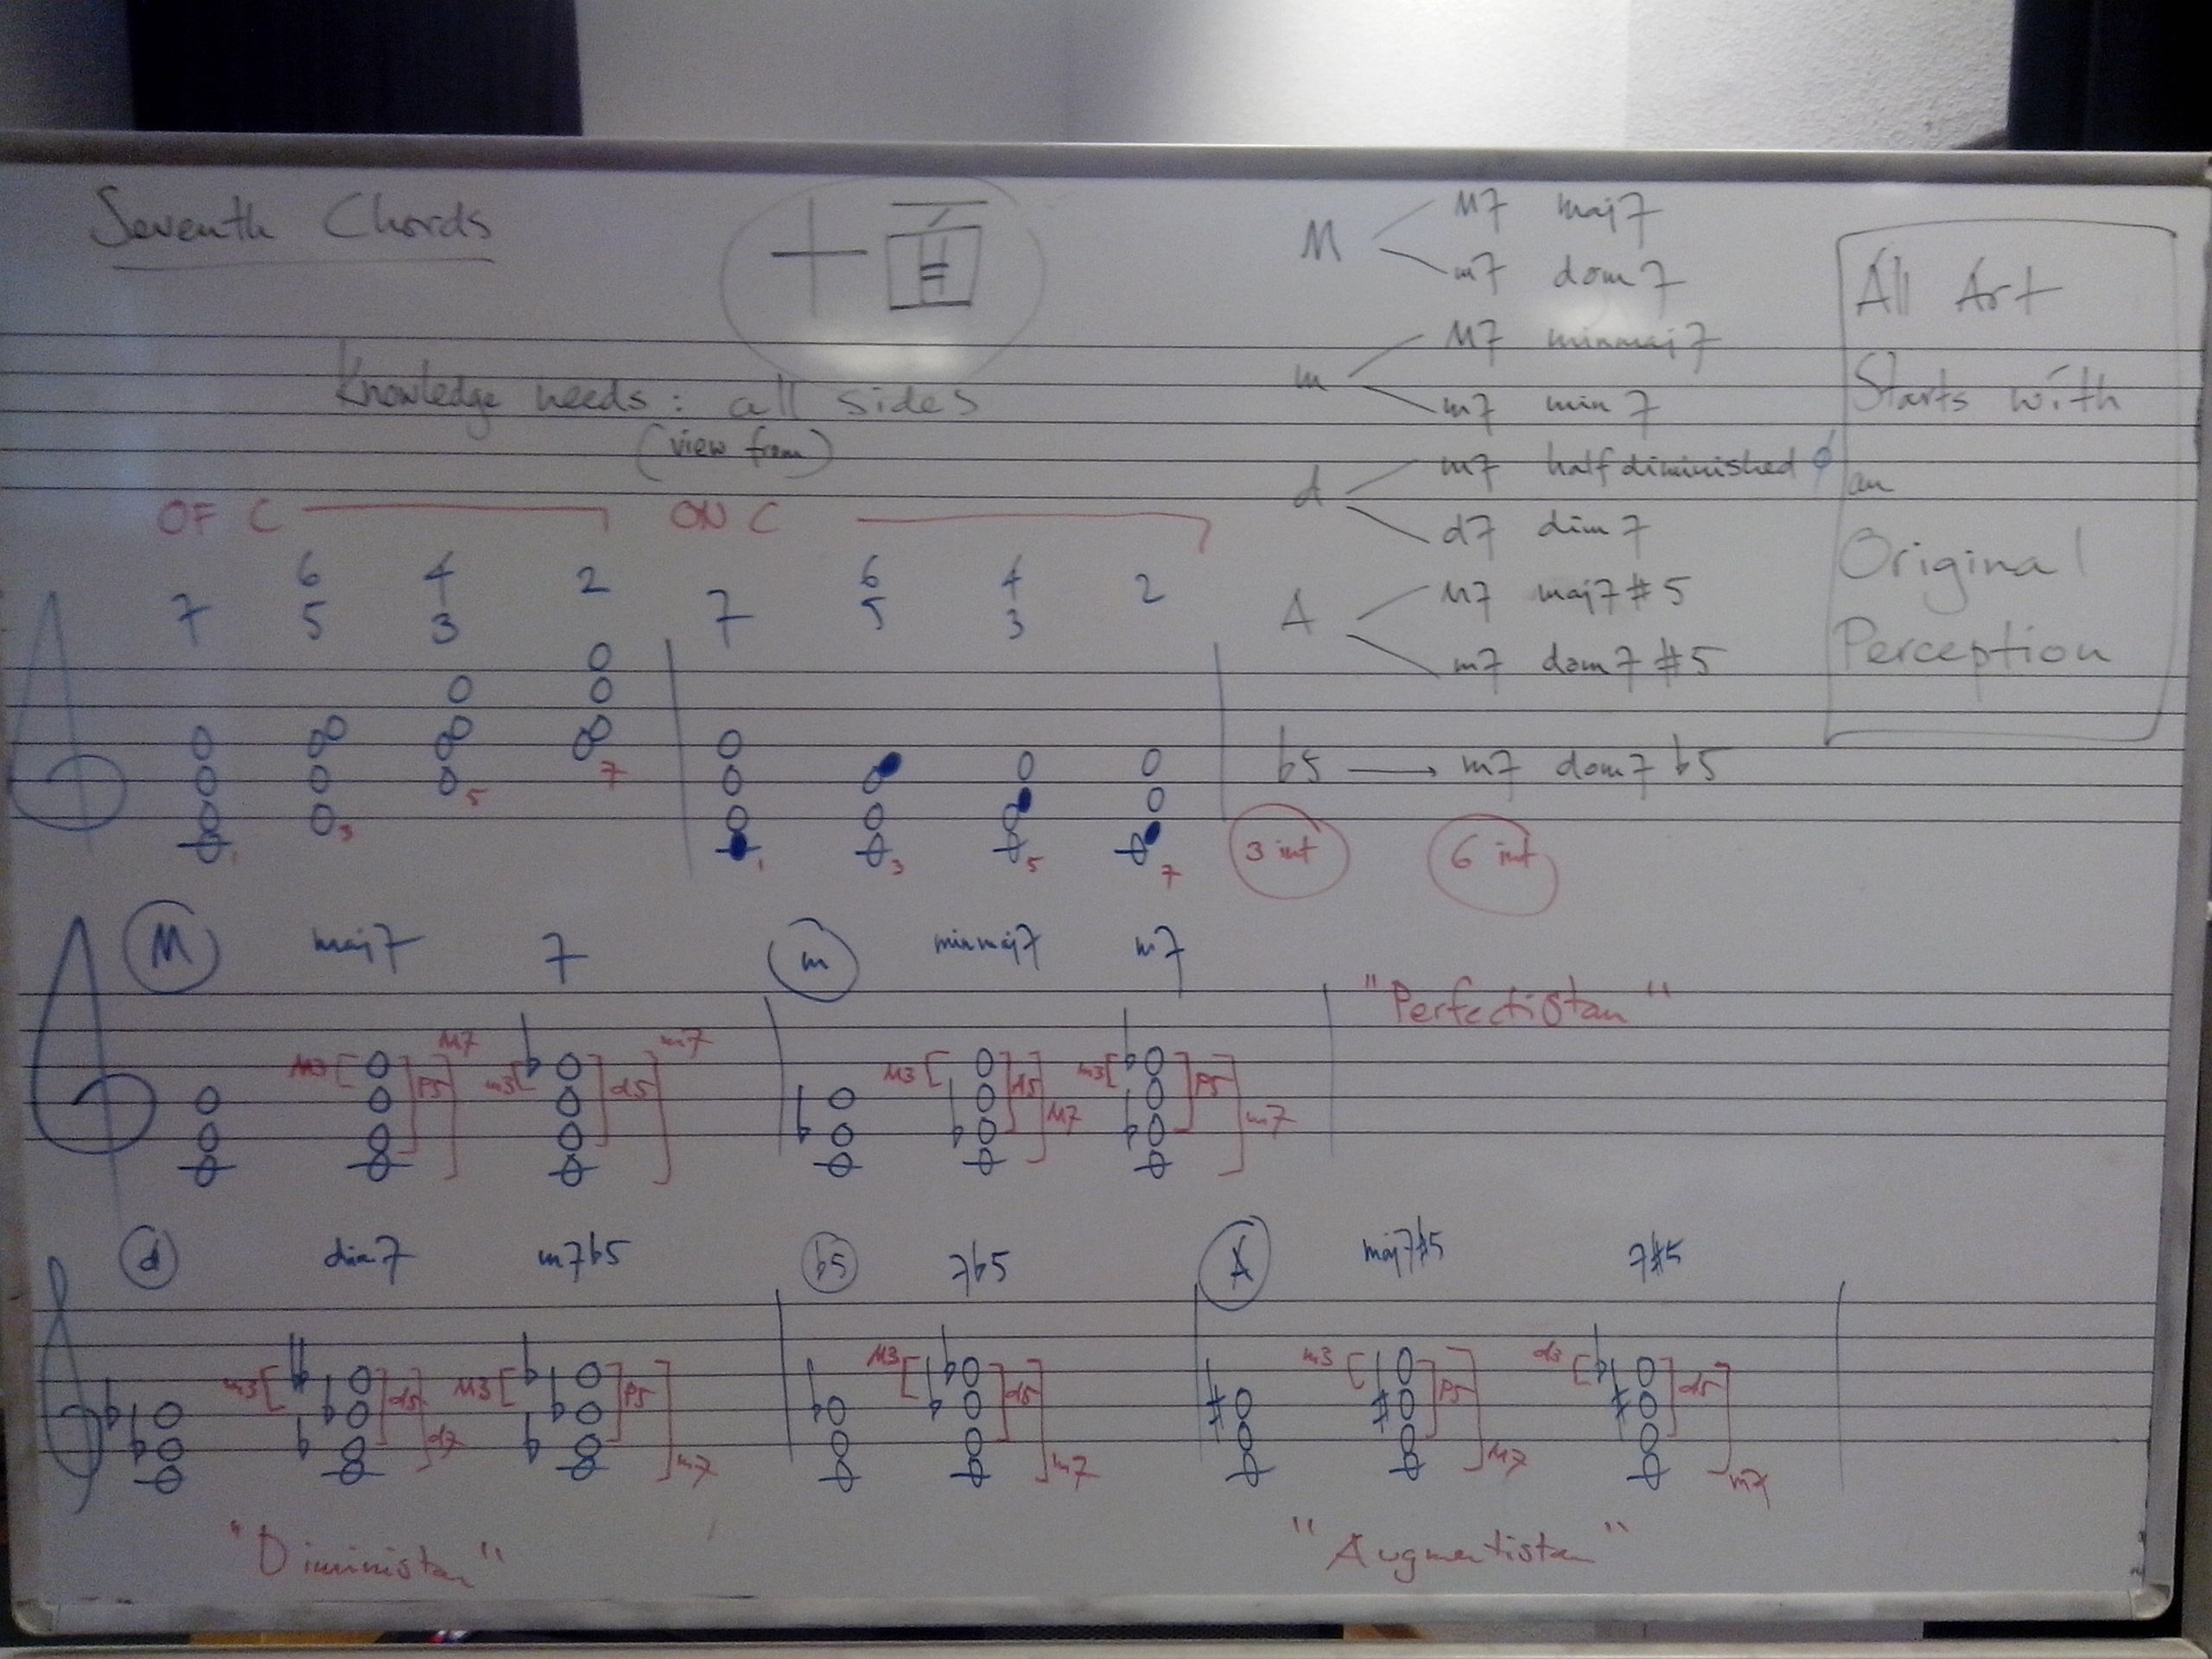 Seventh Chords
十面
Knowledge needs: all sides
(view from)
M
M7 maj7
m7 dom7
m
M7 minmaj7
m7 min7
d
m7 half diminished ø
d7 dim7
A
M7 maj7#5
m7 dom7#5
b5 → m7 dom7b5
All Art
Starts with
an
Original
Perception
OF C ON C
7 6 4 2 7 6 4 2
5 3 5 3
1 3 5 7 1 3 5 7
3 int 6 int
M maj7 7 m minmaj7 m7
"Perfectistan"
M3 P5 M7 m3 d5 m7 M3 A5 M7 m3 P5 m7
d dim7 m7b5 b5 7b5 A maj7#5 7#5
m3 d5 d7 M3 P5 m7 M3 d5 m7 m3 P5 M7 d3 d5 m7
"Diministan" "Augmentistan"